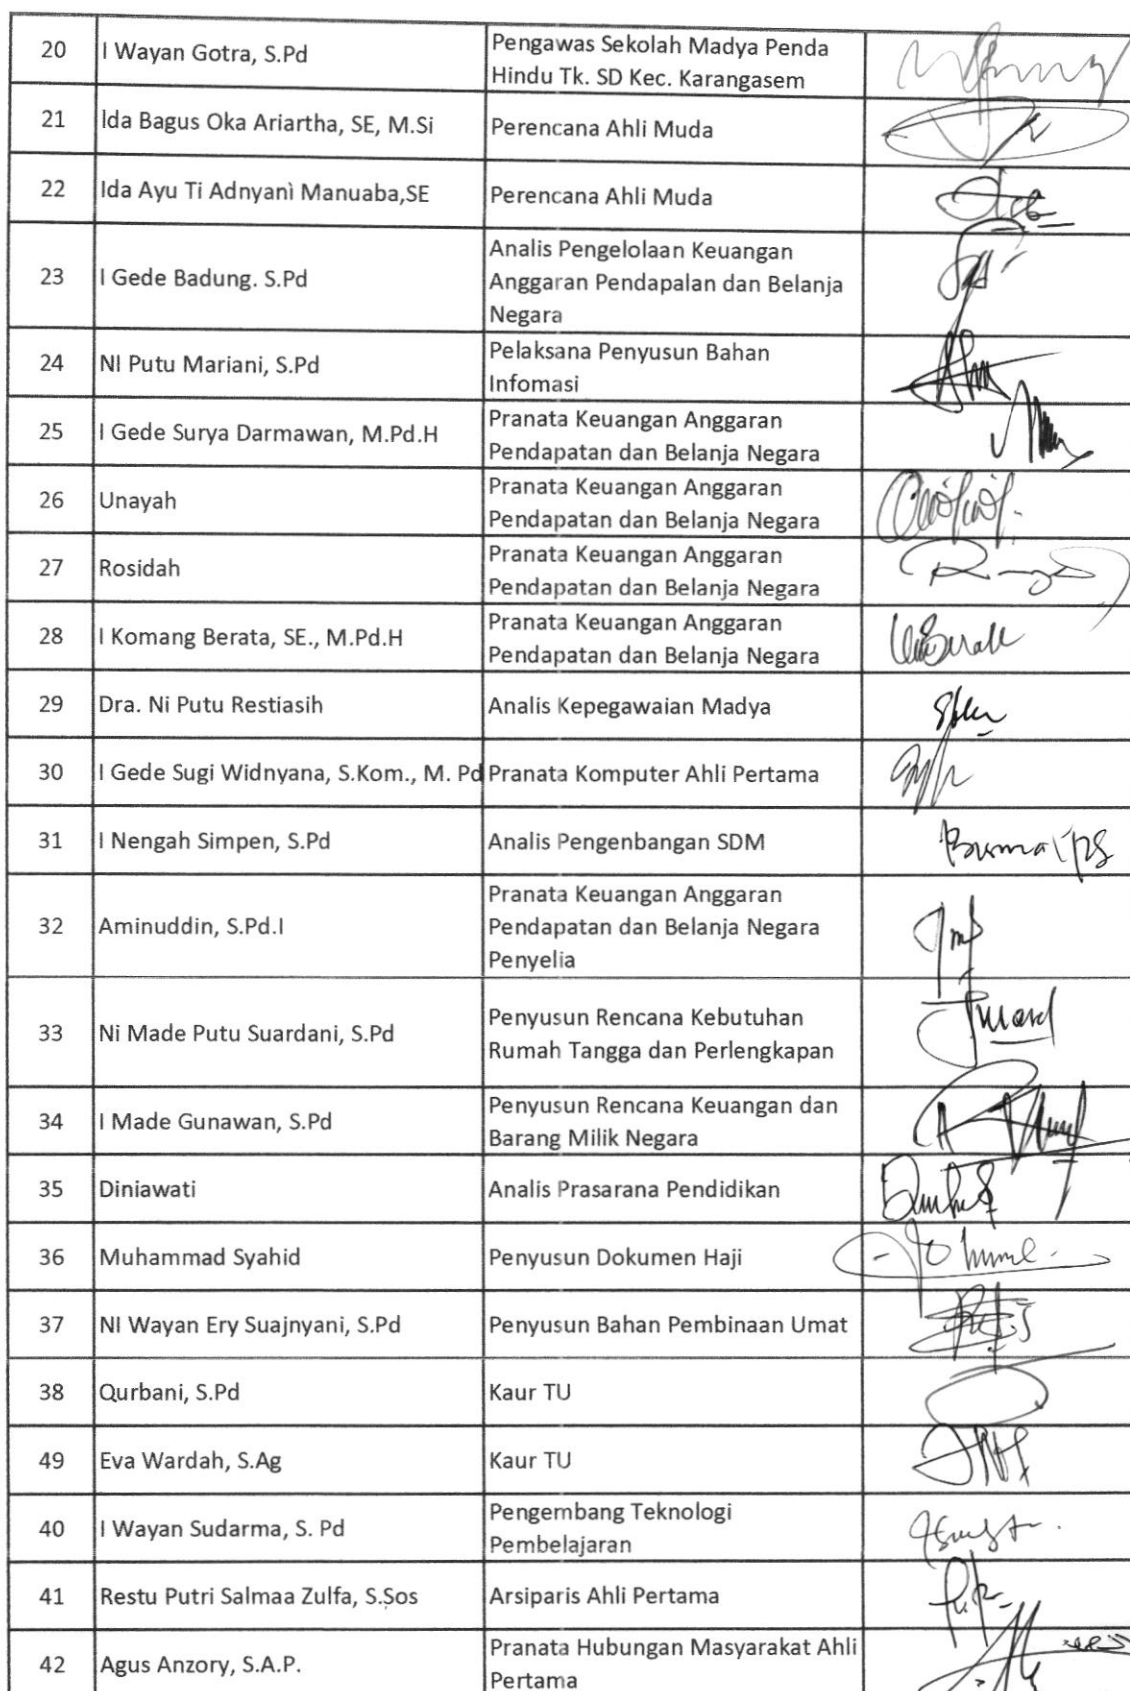 20 I Wayan Gotra, S.Pd Pengawas Sekolah Madya Penda
Hindu Tk. SD Kec. Karangasem
21 Ida Bagus Oka Ariartha, SE, M.Si Perencana Ahli Muda
22 Ida Ayu Ti Adnyani Manuaba,SE Perencana Ahli Muda
23 I Gede Badung. S.Pd Analis Pengelolaan Keuangan
Anggaran Pendapalan dan Belanja
Negara
24 NI Putu Mariani, S.Pd Pelaksana Penyusun Bahan
Infomasi
25 I Gede Surya Darmawan, M.Pd.H Pranata Keuangan Anggaran
Pendapatan dan Belanja Negara
26 Unayah Pranata Keuangan Anggaran
Pendapatan dan Belanja Negara
27 Rosidah Pranata Keuangan Anggaran
Pendapatan dan Belanja Negara
28 I Komang Berata, SE., M.Pd.H Pranata Keuangan Anggaran
Pendapatan dan Belanja Negara
29 Dra. Ni Putu Restiasih Analis Kepegawaian Madya
30 I Gede Sugi Widnyana, S.Kom., M. Pd Pranata Komputer Ahli Pertama
31 I Nengah Simpen, S.Pd Analis Pengenbangan SDM
32 Aminuddin, S.Pd.I Pranata Keuangan Anggaran
Pendapatan dan Belanja Negara
Penyelia
33 Ni Made Putu Suardani, S.Pd Penyusun Rencana Kebutuhan
Rumah Tangga dan Perlengkapan
34 I Made Gunawan, S.Pd Penyusun Rencana Keuangan dan
Barang Milik Negara
35 Diniawati Analis Prasarana Pendidikan
36 Muhammad Syahid Penyusun Dokumen Haji
37 NI Wayan Ery Suajnyani, S.Pd Penyusun Bahan Pembinaan Umat
38 Qurbani, S.Pd Kaur TU
49 Eva Wardah, S.Ag Kaur TU
40 I Wayan Sudarma, S. Pd Pengembang Teknologi
Pembelajaran
41 Restu Putri Salmaa Zulfa, S.Sos Arsiparis Ahli Pertama
42 Agus Anzory, S.A.P. Pranata Hubungan Masyarakat Ahli
Pertama